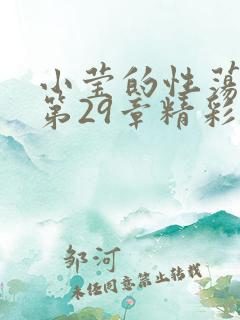 小莹的性荡
第29章精彩
邹河
未经同意禁止转载